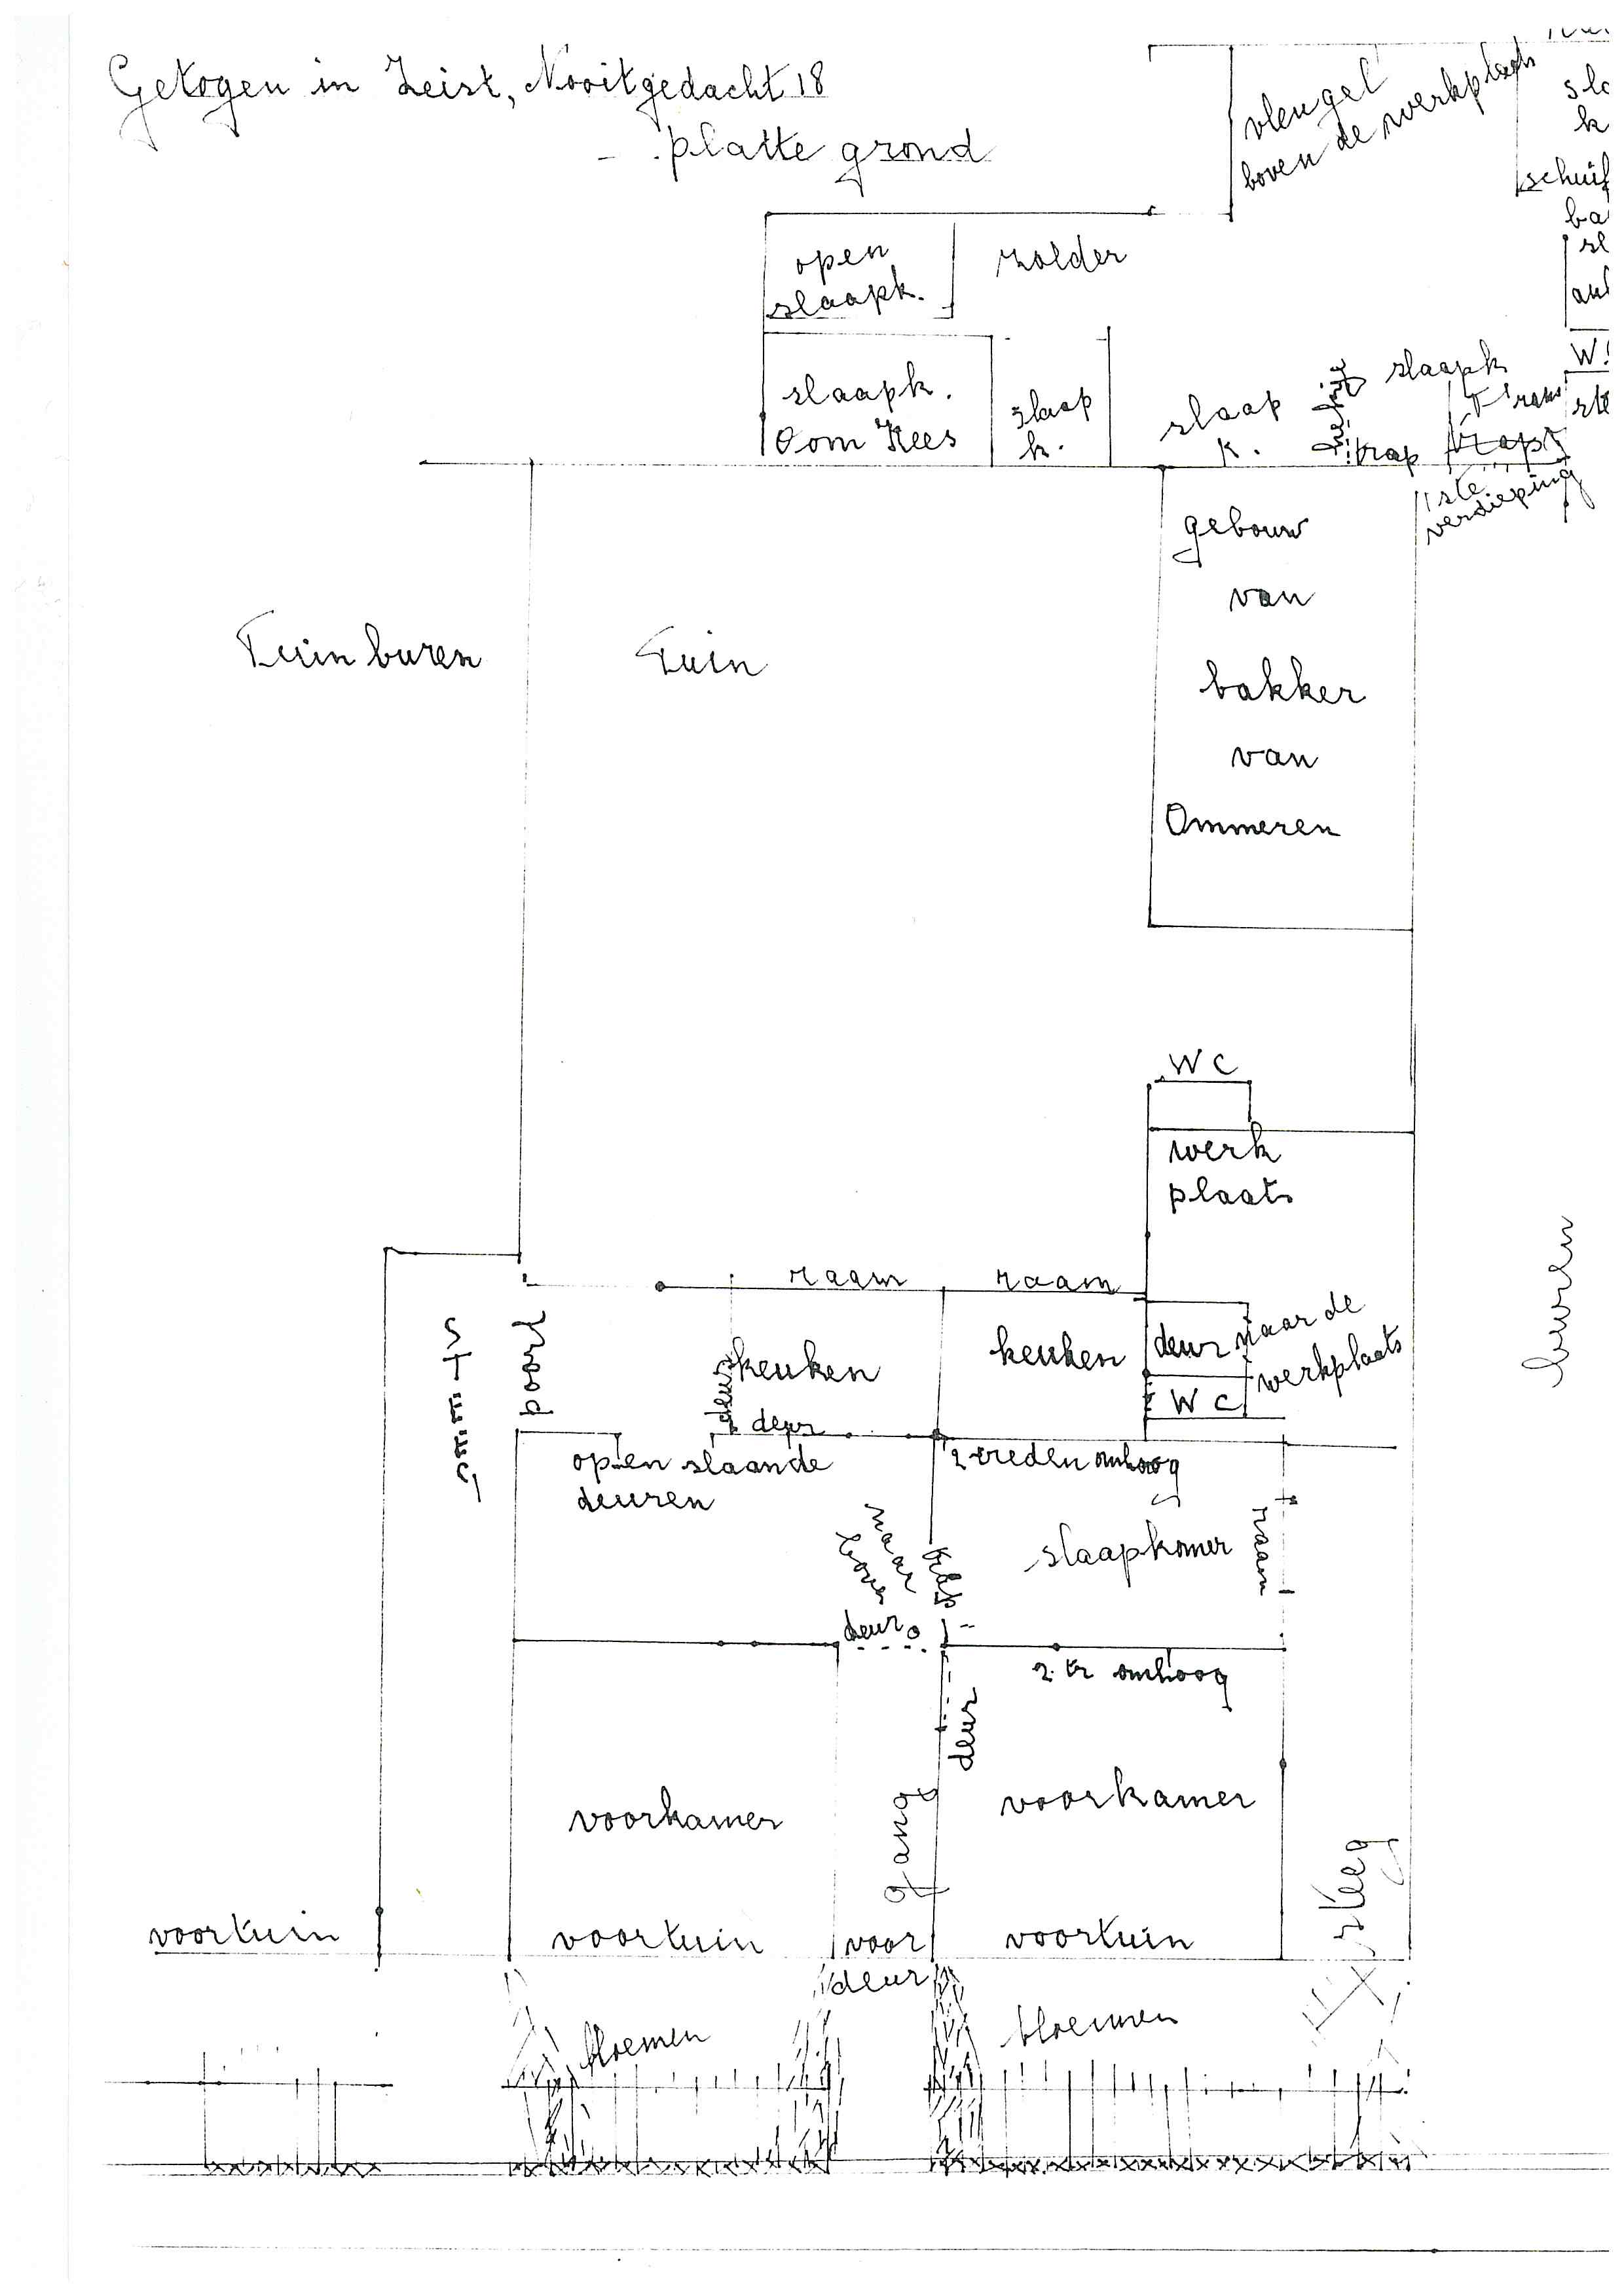 Getogen in Zeist, Nooitgedacht 18
platte grond
vleugel
boven de werkplaats
schuif
open
slaapk.
zolder
slaapk.
Oom Kees
slaap
k.
slaap
k.
slaapk
trap
1ste
verdieping
Tuin buren
Tuin
gebouw
van
bakker
van
Ommeren
WC
werk
plaats
buren
raam
raam
poort
keuken
deur
deur
keuken
deur naar de
werkplaats
WC
open slaande
deuren
2 treden omhoog
naar
boven
trap
slaapkamer
raam
deur
2 tr omhoog
deur
voorkamer
gang
voorkamer
steeg
voortuin
voortuin
voor
deur
voortuin
bloemen
bloemen